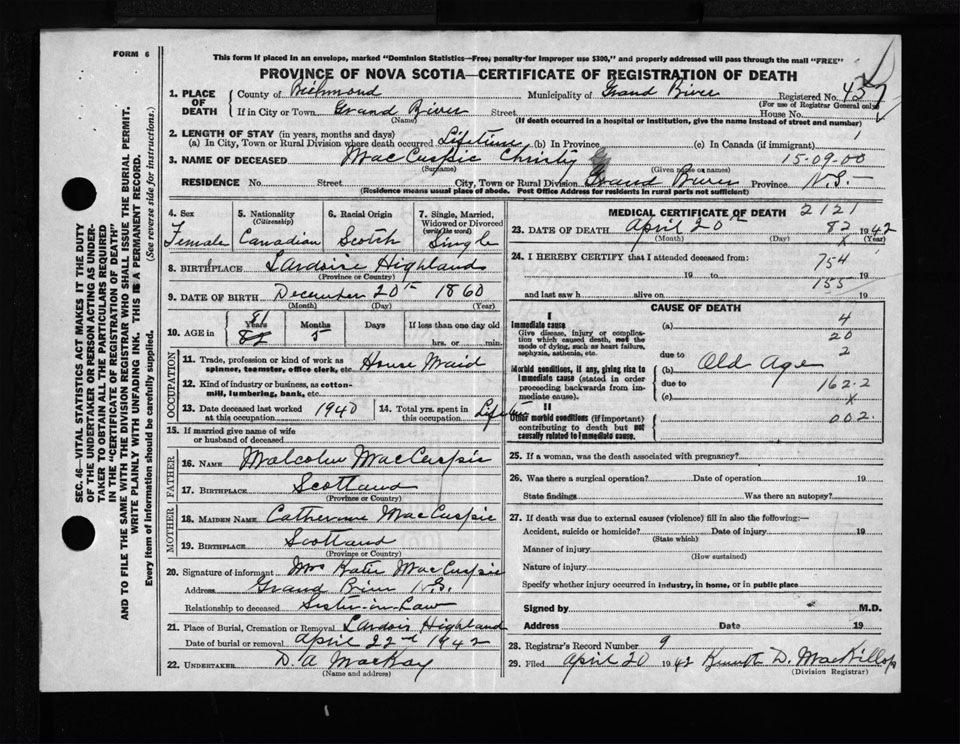 FORM 6
This form if placed in an envelope, marked "Dominion Statistics—Free, penalty for improper use $300," and properly addressed will pass through the mail "FREE"
PROVINCE OF NOVA SCOTIA—CERTIFICATE OF REGISTRATION OF DEATH
1. PLACE OF DEATH
County of Richmond Municipality of Grand River Registered No. 43
(For use of Registrar General only)
If in City or Town Grand River Street House No.
(Name) (If death occurred in a hospital or institution, give the name instead of street and number)
2. LENGTH OF STAY (in years, months and days)
(a) In City, Town or Rural Division where death occurred Lifetime (b) In Province (c) In Canada (if immigrant)
3. NAME OF DECEASED MacCuspic Christy 15-09-00
(Surname) (Given name or names)
RESIDENCE No. Street City, Town or Rural Division Grand River Province N.S.
(Residence means usual place of abode. Post Office Address for residents in rural parts not sufficient)
4. Sex Female
5. Nationality (Citizenship) Canadian
6. Racial Origin Scotch
7. Single, Married, Widowed or Divorced (write the word) Single
8. BIRTHPLACE Lardoise Highlands
(Province or Country)
9. DATE OF BIRTH December 20th 1860
(Month) (Day) (Year)
10. AGE in 81 Years 82 Months 5 Days If less than one day old hrs. or min.
OCCUPATION
11. Trade, profession or kind of work as spinner, teamster, office clerk, etc. House Maid
12. Kind of industry or business, as cotton-mill, lumbering, bank, etc.
13. Date deceased last worked at this occupation 1940
14. Total yrs. spent in this occupation Lifetime
15. If married give name of wife or husband of deceased
FATHER
16. NAME Malcolm MacCuspic
17. BIRTHPLACE Scotland
(Province or Country)
MOTHER
18. MAIDEN NAME Catherine MacCuspic
19. BIRTHPLACE Scotland
(Province or Country)
20. Signature of informant Mrs Katie MacCuspic
Address Grand River N.S.
Relationship to deceased Sister-in-Law
21. Place of Burial, Cremation or Removal Lardois Highland
Date of burial or removal April 22nd 1942
22. UNDERTAKER D. A MacKay
(Name and address)
MEDICAL CERTIFICATE OF DEATH 2121
23. DATE OF DEATH April 20th 82 1942
(Month) (Day) x (Year)
24. I HEREBY CERTIFY that I attended deceased from: 754
19 to 19
155
and last saw h alive on 19
CAUSE OF DEATH
I
Immediate cause
Give disease, injury or complication which caused death, not the mode of dying, such as heart failure, asphyxia, asthenia, etc.
(a) 4
20
due to 2
Morbid conditions, if any, giving rise to immediate cause (stated in order proceeding backwards from immediate cause).
(b) Old Age
due to 162.2
(c) x
II
Other morbid conditions (if important) contributing to death but not causally related to immediate cause.
002.
25. If a woman, was the death associated with pregnancy?
26. Was there a surgical operation? Date of operation 19
State findings Was there an autopsy?
27. If death was due to external causes (violence) fill in also the following:—
Accident, suicide or homicide? Date of injury 19
(State which)
Manner of injury
(How sustained)
Nature of injury
Specify whether injury occurred in industry, in home, or in public place
Signed by M.D.
Address Date 19
28. Registrar's Record Number 9
29. Filed April 20 1942 Kenneth D. MacKillop
(Division Registrar)
SEC. 46—VITAL STATISTICS ACT MAKES IT THE DUTY
OF THE UNDERTAKER OR PERSON ACTING AS UNDERTAKER TO OBTAIN ALL THE PARTICULARS REQUIRED
IN THE "CERTIFICATE OF REGISTRATION OF DEATH"
AND TO FILE THE SAME WITH THE DIVISION REGISTRAR WHO SHALL ISSUE THE BURIAL PERMIT.
WRITE PLAINLY WITH UNFADING INK. THIS IS A PERMANENT RECORD.
Every item of information should be carefully supplied. (See reverse side for instructions.)